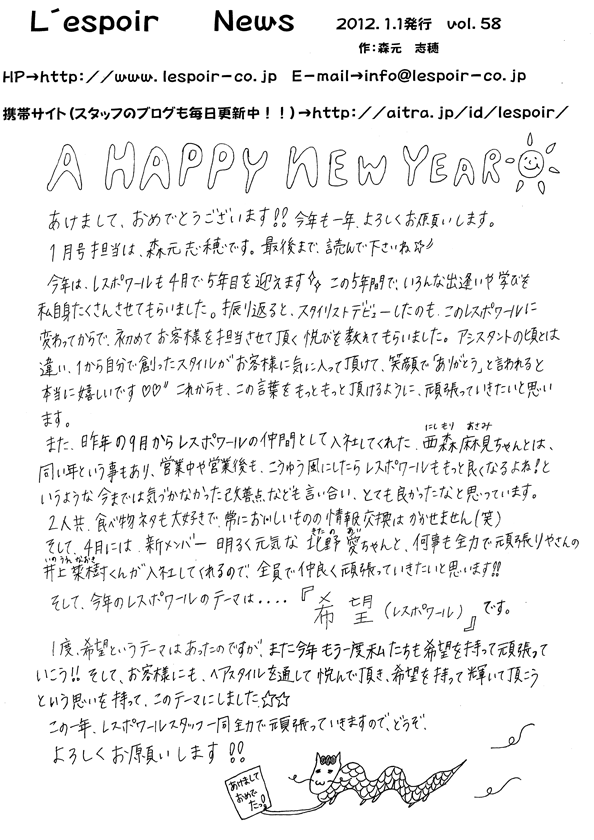 L´espoir News 2012.1.1発行 vol.58
作:森元 志穂
HP→http://www.lespoir-co.jp E-mail→info@lespoir-co.jp
携帯サイト(スタッフのブログも毎日更新中！！)→http://aitra.jp/id/lespoir/
A HAPPY NEW YEAR
あけまして、おめでとうございます!! 今年も一年、よろしくお願いします。
1月号担当は、森元志穂です。最後まで、読んで下さいね☆
今年は、レスポワールも4月で5年目を迎えます この5年間で、いろんな出逢いや学びを
私自身たくさんさせてもらいました。振り返ると、スタイリストデビューしたのも、このレスポワールに
変わってからで、初めてお客様を担当させて頂く悦びを教えてもらいました。アシスタントの頃とは
違い、1から自分で創ったスタイルがお客様に気に入って頂けて、笑顔で「ありがとう」と言われると
本当に嬉しいです♡♡" これからも、この言葉をもっともっと頂けるように、頑張っていきたいと思い
ます。
また、昨年の9月からレスポワールの仲間として入社してくれた、西森麻見ちゃんとは、
にしもり あさみ
同い年という事もあり、営業中や営業後も、こうゆう風にしたらレスポワールももっと良くなるよね!と
いうような今までは気づかなかった改善点なども言い合い、とても良かったなと思っています。
2人共、食べ物ネタも大好きで、常においしいものの情報交換はかかせません(笑)
そして、4月には、新メンバー 明るく元気な 北野 愛ちゃんと、何事も全力で頑張りやさんの
きたの あい
井上 菜樹くんが入社してくれるので、全員で仲良く頑張っていきたいと思います!!
いのうえ なおき
そして、今年のレスポワールのテーマは....『希望(レスポワール)』です。
1度、希望というテーマはあったのですが、また今年もう一度私たちも希望を持って頑張って
いこう!! そして、お客様にも、ヘアスタイルを通して悦んで頂き、希望を持って輝いて頂こう
という思いを持って、このテーマにしました☆☆
この一年、レスポワールスタッフ一同全力で頑張っていきますので、どうぞ、
よろしくお願いします!!
あけまして
おめで
たっ!